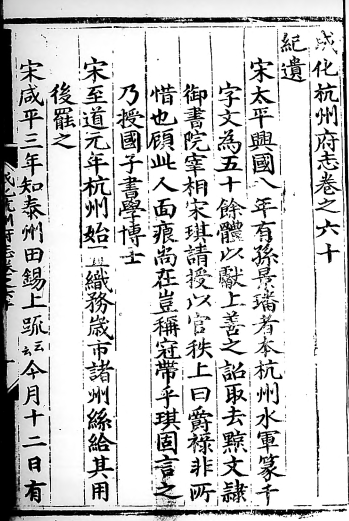 成化杭州府志卷之六十
紀遺
宋太平興國八年有孫景璠者本杭州水軍篆千
字文為五十餘體以獻上善之詔取去黥文隷
御書院宰相宋琪請授以官秩上曰爵祿非所
惜也顧此人面痕尚在豈稱冠帶乎琪固言之
乃授國子書學博士
宋至道元年杭州始置織務歲市諸州絲給其用
後罷之
宋咸平三年知泰州田錫上疏云今月十二日有